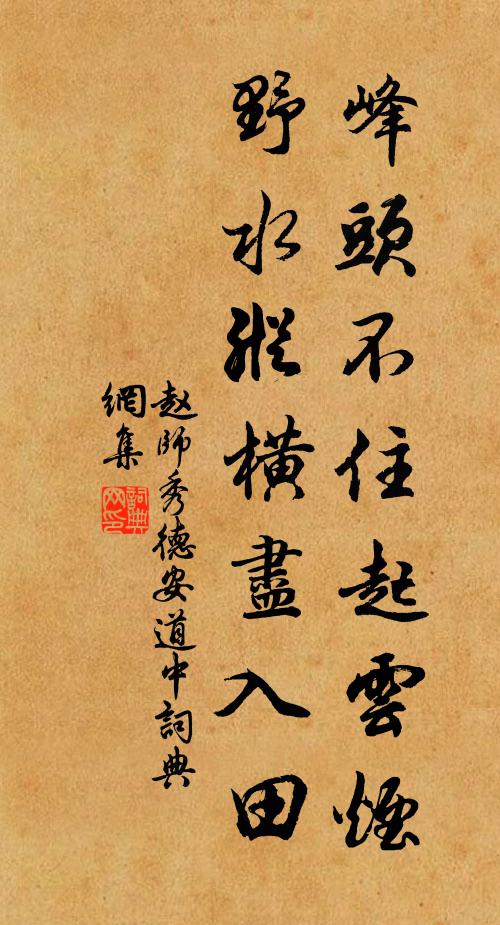 峰頭不住起雲煙
野水縱橫盡入田
赵師秀德安道中詞典
網集
詞典网印